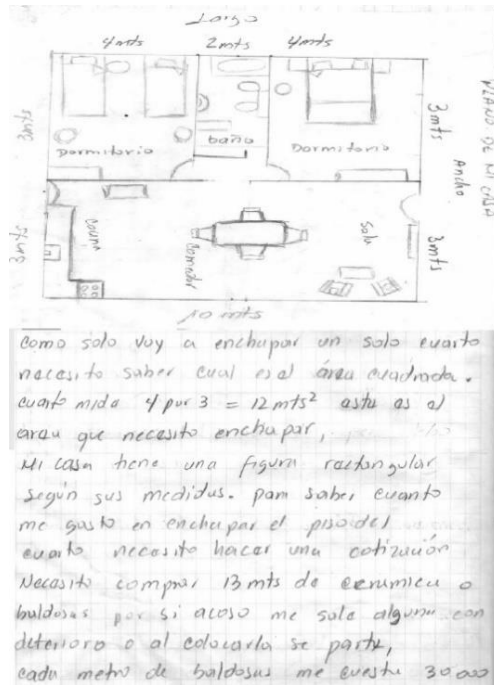 Largo
4 mts 2 mts 4 mts
PLANO DE MI CASA
3 mts
3 mts
Ancho
Dormitorio
baño
Dormitorio
3 mts
3 mts
Cocina
Comedor
Sala
10 mts
Como solo voy a enchapar un solo cuarto
necesito saber cual es el área cuadrada.
cuarto mide 4 por 3 = 12 mts² este es el
area que necesito enchapar,
Mi casa tiene una figura rectangular
según sus medidas. para saber cuanto
me gasto en enchapar el piso del
cuarto necesito hacer una cotización
Necesito comprar 13 mts de ceramica o
baldosas por si acaso me sale alguna con
deterioro o al colocarla se parte,
cada metro de baldosas me cuesta 30 000